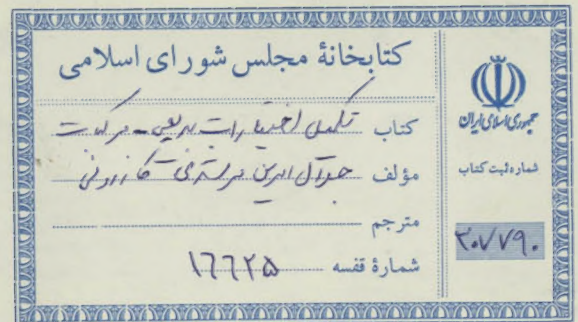 کتابخانهٔ مجلس شورای اسلامی
کتاب تکمیل اختیارات بدیعی - مرکبات
مؤلف جلال الدین مرشدی کازرونی
مترجم
شمارهٔ قفسه ۱۶۶۲۵
جمهوری اسلامی ایران
شماره ثبت کتاب
۳۰۷۷۹۰